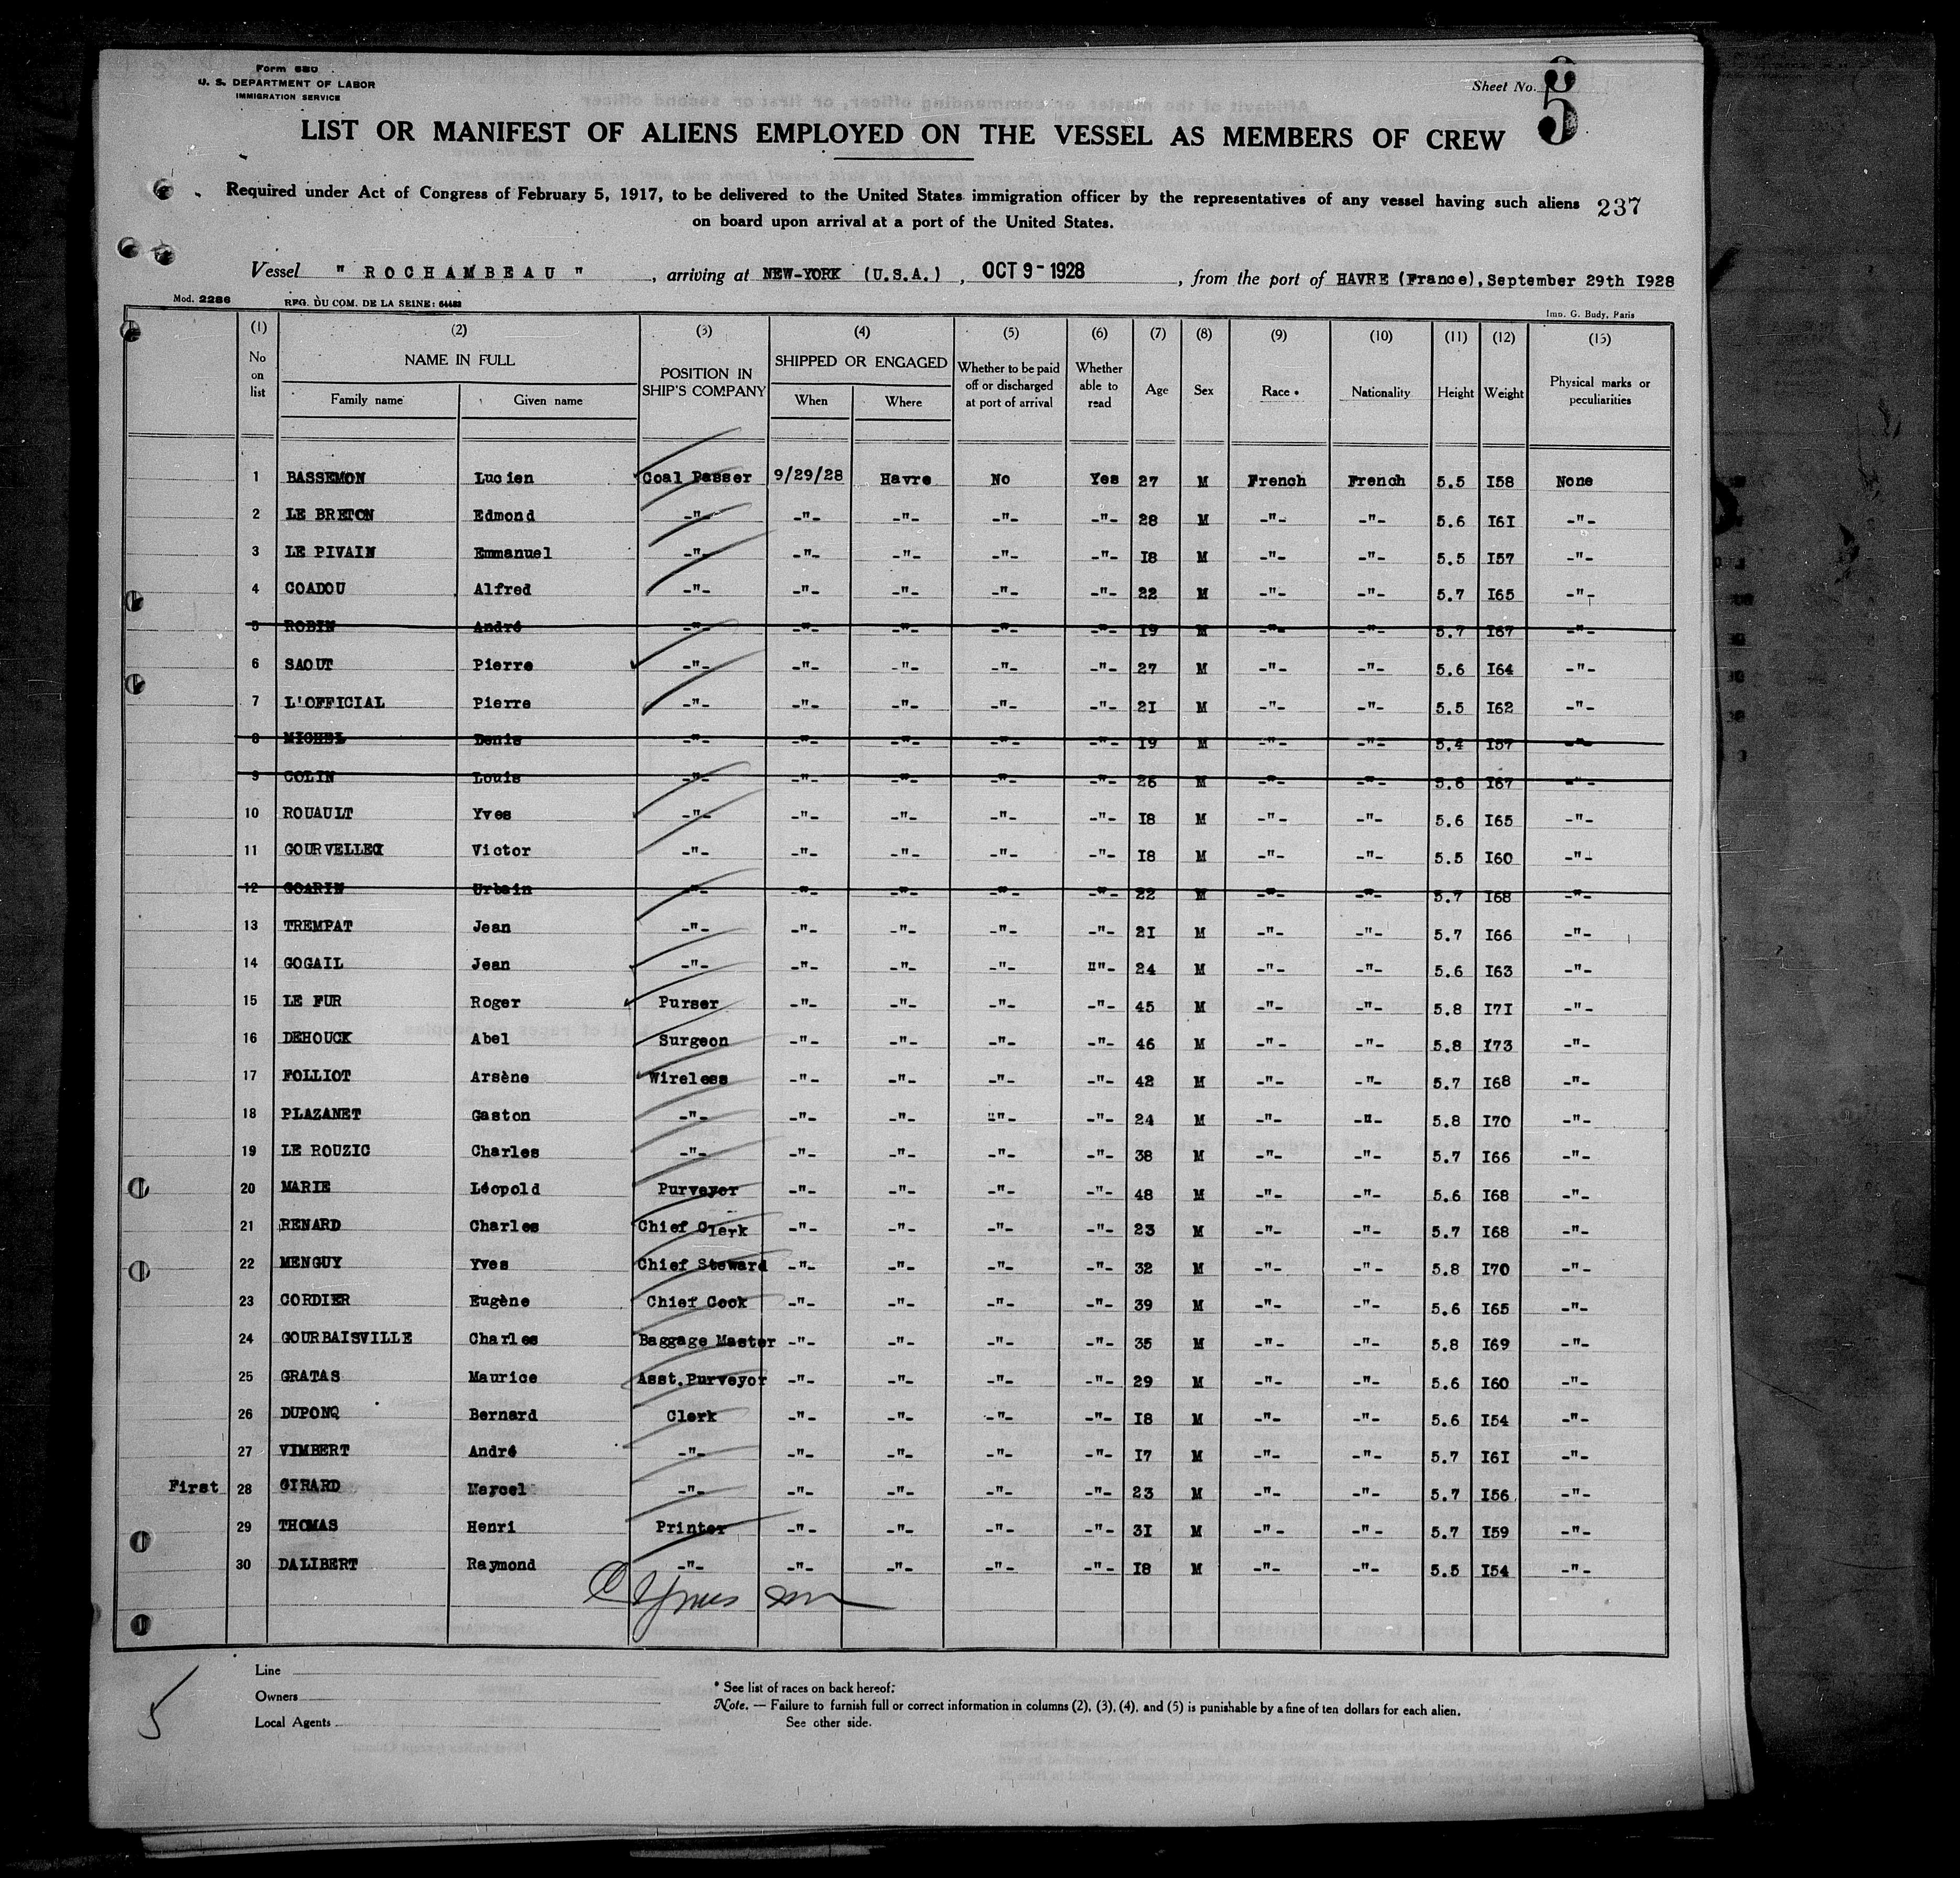 Form 680
U. S. DEPARTMENT OF LABOR
IMMIGRATION SERVICE
Sheet No. 5
LIST OR MANIFEST OF ALIENS EMPLOYED ON THE VESSEL AS MEMBERS OF CREW
Required under Act of Congress of February 5, 1917, to be delivered to the United States immigration officer by the representatives of any vessel having such aliens 237
on board upon arrival at a port of the United States.
Vessel "ROCHAMBEAU", arriving at NEW-YORK (U.S.A.), OCT 9-1928, from the port of HAVRE (France), September 29th I928
Mod. 2286 REG. DU COM. DE LA SEINE: 64482 Imp. G. Budy, Paris
(1) (2) (3) (4) (5) (6) (7) (8) (9) (10) (11) (12) (13)
No on list NAME IN FULL Family name Given name POSITION IN SHIP'S COMPANY SHIPPED OR ENGAGED When Where Whether to be paid off or discharged at port of arrival Whether able to read Age Sex Race * Nationality Height Weight Physical marks or peculiarities
1 BASSEMON Lucien Coal Passer 9/29/28 Havre No Yes 27 M French French 5.5 I58 None
2 LE BRETON Edmond -"- -"- -"- -"- -"- 28 M -"- -"- 5.6 I6I -"-
3 LE PIVAIN Emmanuel -"- -"- -"- -"- -"- I8 M -"- -"- 5.5 I57 -"-
4 COADOU Alfred -"- -"- -"- -"- -"- 22 M -"- -"- 5.7 I65 -"-
5 ROBIN André -"- -"- -"- -"- -"- I9 M -"- -"- 5.7 I67 -"-
6 SAOUT Pierre -"- -"- -"- -"- -"- 27 M -"- -"- 5.6 I64 -"-
7 L'OFFICIAL Pierre -"- -"- -"- -"- -"- 2I M -"- -"- 5.5 I62 -"-
8 MICHEL Denis -"- -"- -"- -"- -"- I9 M -"- -"- 5.4 I57 -"-
9 COLIN Louis -"- -"- -"- -"- -"- 26 M -"- -"- 5.6 I67 -"-
10 ROUAULT Yves -"- -"- -"- -"- -"- I8 M -"- -"- 5.6 I65 -"-
11 GOURVELLEC Victor -"- -"- -"- -"- -"- I8 M -"- -"- 5.5 I60 -"-
12 GOARIN Urbain -"- -"- -"- -"- -"- 22 M -"- -"- 5.7 I68 -"-
13 TREMPAT Jean -"- -"- -"- -"- -"- 2I M -"- -"- 5.7 I66 -"-
14 GOGAIL Jean -"- -"- -"- -"- ""- 24 M -"- -"- 5.6 I63 -"-
15 LE FUR Roger Purser -"- -"- -"- -"- 45 M -"- -"- 5.8 I7I -"-
16 DEHOUCK Abel Surgeon -"- -"- -"- -"- 46 M -"- -"- 5.8 I73 -"-
17 FOLLIOT Arsène Wireless -"- -"- -"- -"- 42 M -"- -"- 5.7 I68 -"-
18 PLAZANET Gaston -"- -"- -"- ""- -"- 24 M -"- -"- 5.8 I70 -"-
19 LE ROUZIC Charles -"- -"- -"- -"- -"- 38 M -"- -"- 5.7 I66 -"-
20 MARIE Léopold Purveyor -"- -"- -"- -"- 48 M -"- -"- 5.6 I68 -"-
21 RENARD Charles Chief Clerk -"- -"- -"- -"- 23 M -"- -"- 5.7 I68 -"-
22 MENGUY Yves Chief Steward -"- -"- -"- -"- 32 M -"- -"- 5.8 I70 -"-
23 CORDIER Eugène Chief Cook -"- -"- -"- -"- 39 M -"- -"- 5.6 I65 -"-
24 GOURBAISVILLE Charles Baggage Master -"- -"- -"- -"- 35 M -"- -"- 5.8 I69 -"-
25 GRATAS Maurice Asst.Purveyor -"- -"- -"- -"- 29 M -"- -"- 5.6 I60 -"-
26 DUPONQ Bernard Clerk -"- -"- -"- -"- I8 M -"- -"- 5.6 I54 -"-
27 VIMBERT André -"- -"- -"- -"- -"- I7 M -"- -"- 5.7 I6I -"-
First 28 GIRARD Marcel -"- -"- -"- -"- -"- 23 M -"- -"- 5.7 I56 -"-
29 THOMAS Henri Printer -"- -"- -"- -"- 3I M -"- -"- 5.7 I59 -"-
30 DALIBERT Raymond -"- -"- -"- -"- -"- I8 M -"- -"- 5.5 I54 -"-
Line
Owners
Local Agents
* See list of races on back hereof:
Note. — Failure to furnish full or correct information in columns (2), (3), (4), and (5) is punishable by a fine of ten dollars for each alien.
See other side.
5